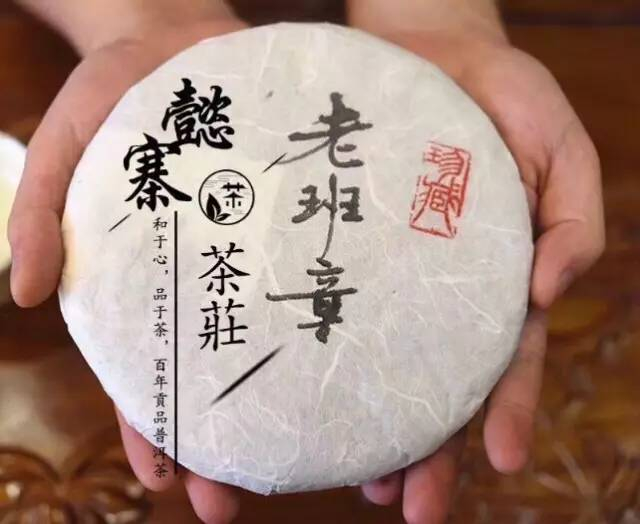 老班章
珍藏
懿寨
茶
茶莊
和于心，品于茶，百年貢品普洱茶